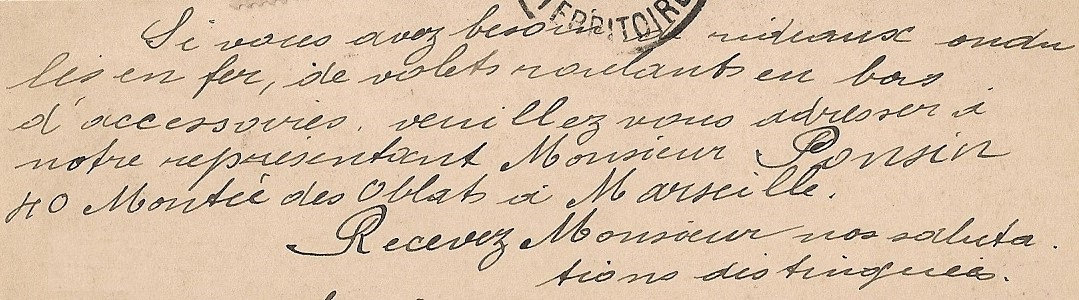 TERRITOIRE
Si vous avez besoin de rideaux ondu
lés en fer, de volets roulants en bois
d'accessoires. veuillez vous adresser à
notre représentant Monsieur Ponsin
40 Montée des Oblats à Marseille.
Recevez Monsieur nos saluta.
tions distinguées.